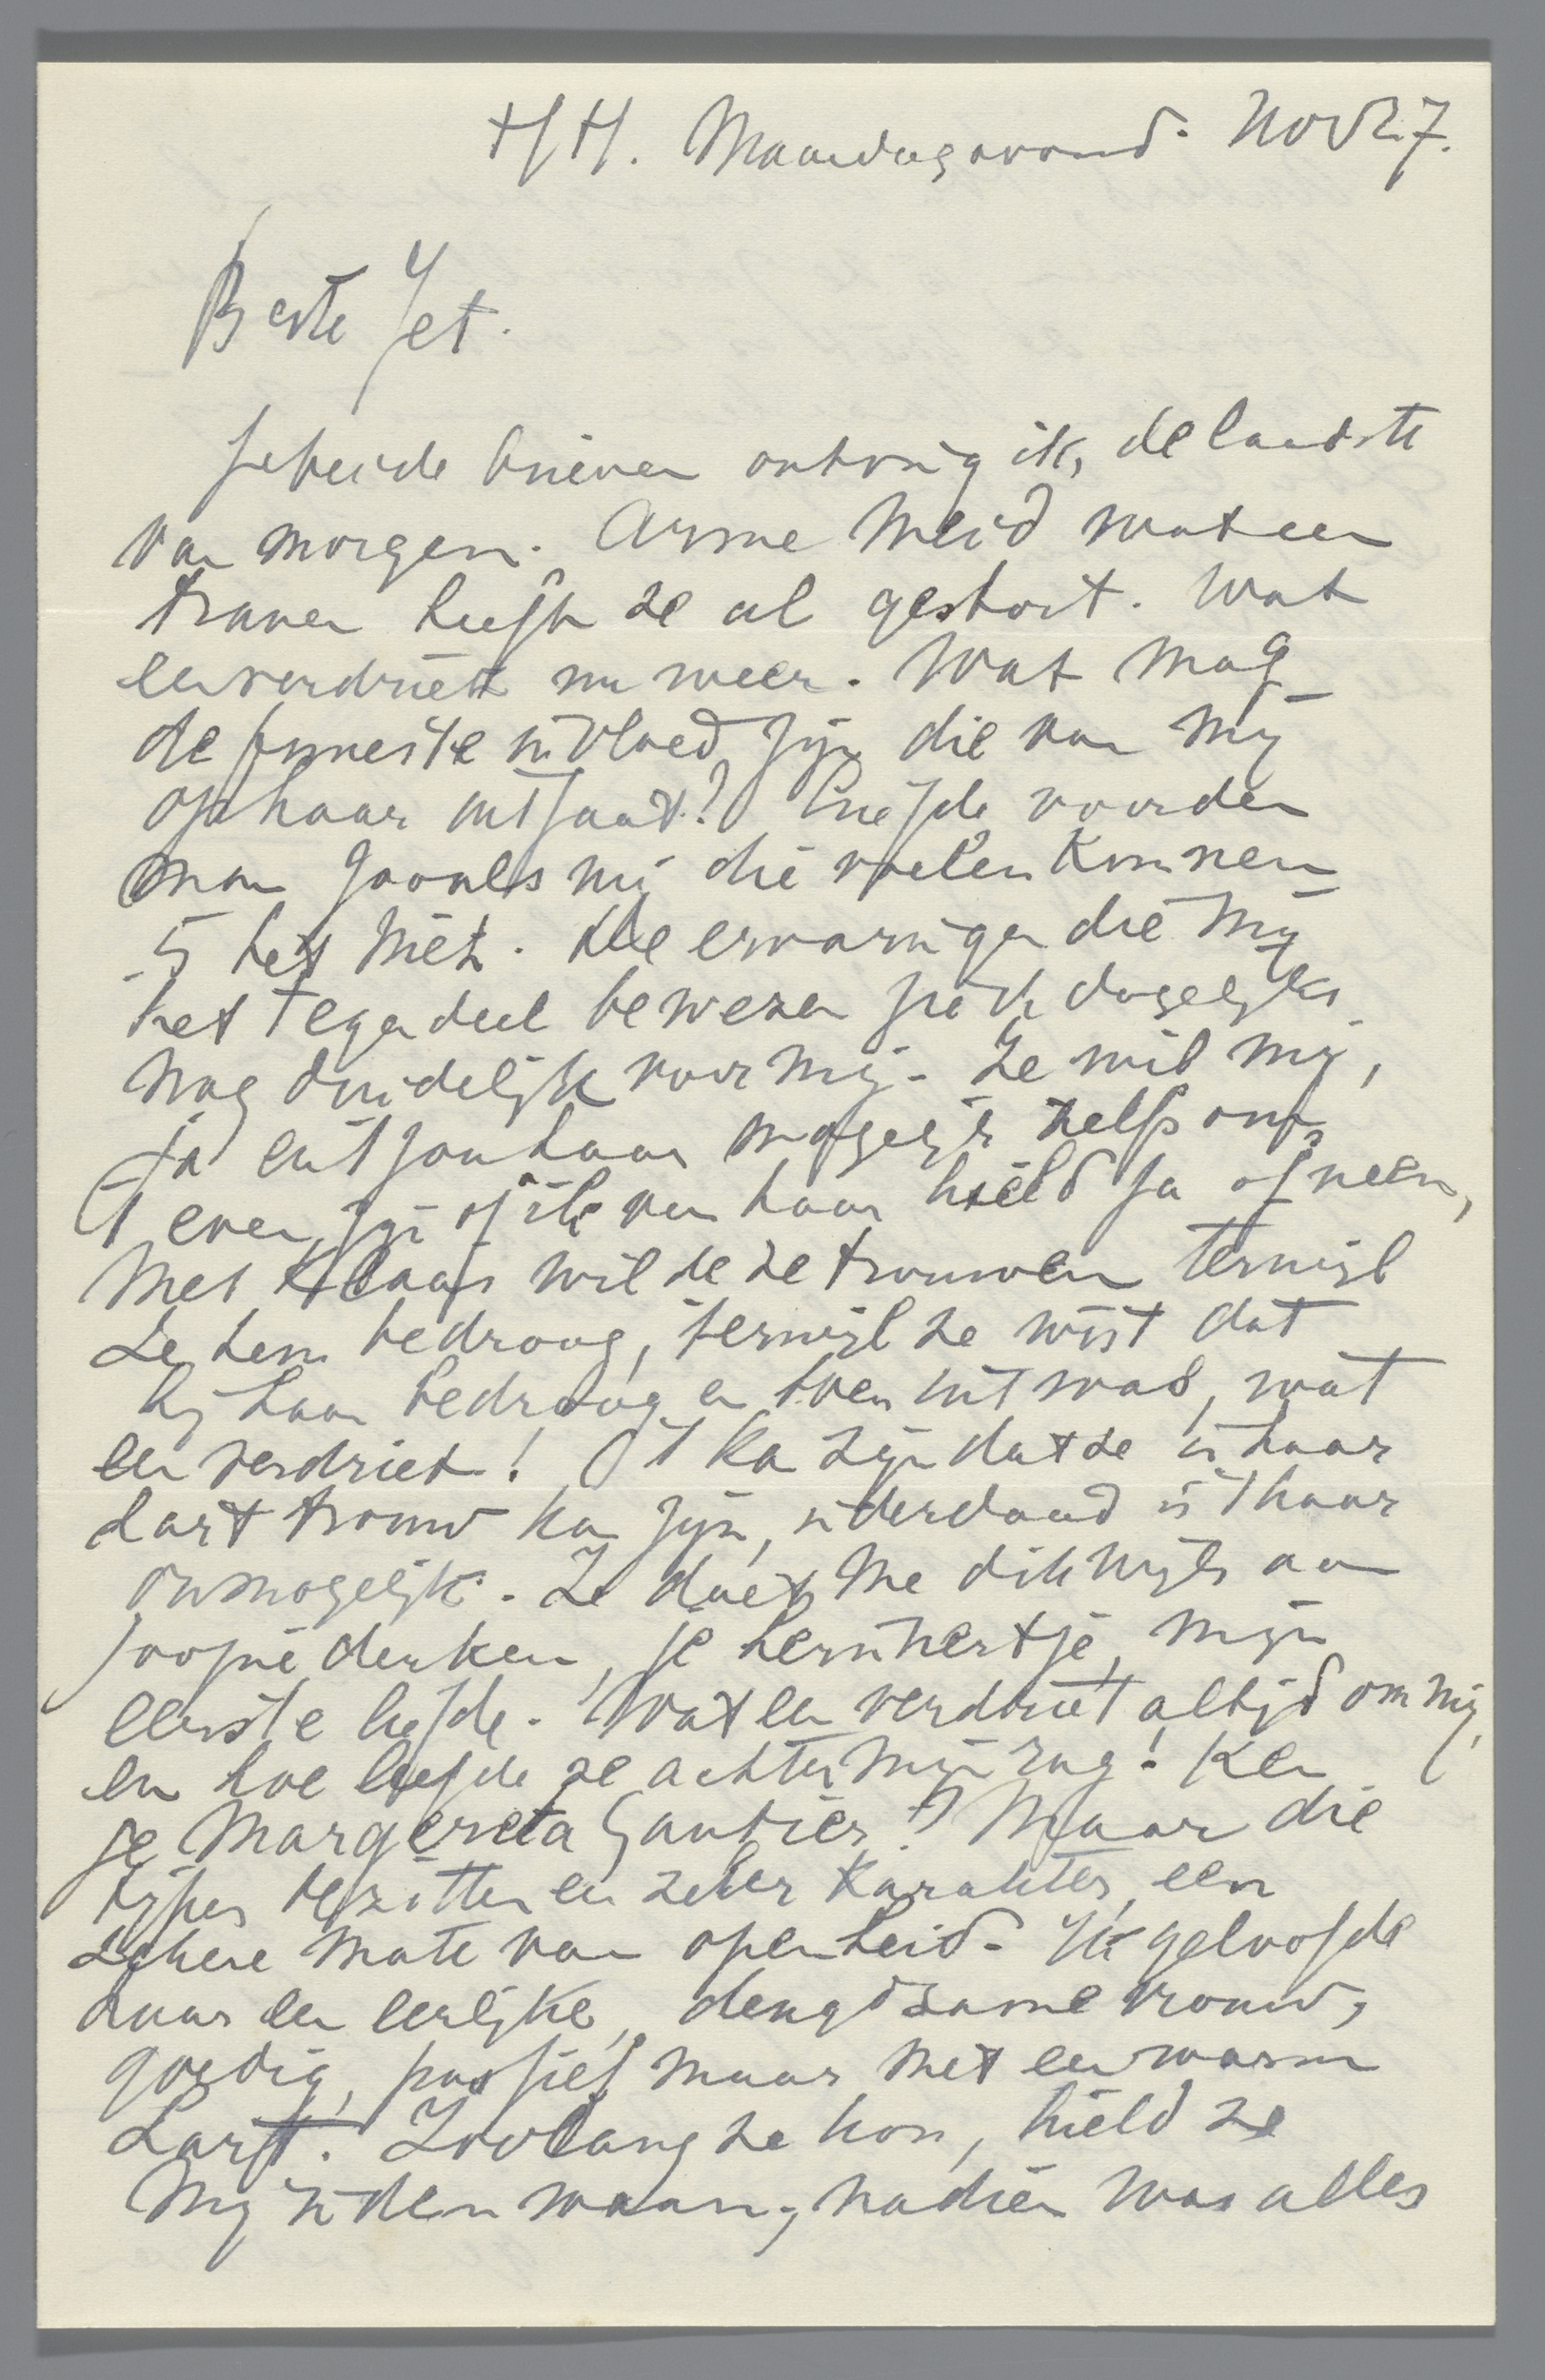 HH. Maandagavond. Nov 27.
Beste Jet.
Je beide brieven ontving ik, de laatste
van morgen. Arme Meid wat een
tranen heeft ze al gestort. Wat
een verdriet nu weer. Wat mag
de funeste invloed zijn die van mij
op haar uitgaat? Liefde voor den
man zooals wij die voelen kunnen
is het niet. De ervaringen die mij
het tegendeel bewezen zie ik dagelijks
nog duidelijk voor mij. Ze wil mij,
ja en 't zou haar mogelijk zelfs om 't
even zijn of ik van haar hield ja of neen,
Met Klaas wilde ze trouwen terwijl
ze hem bedroog, terwijl ze wist dat
hij haar bedroog en toen 't uit was, wat
een verdriet! O 't kan zijn dat ze in haar
hart trouw kan zijn, inderdaad is 't haar
onmogelijk. Ze doet me dikwijls aan
Joopie denken, je herinnert je, mijn
eerste liefde. Wat een verdriet altijd om mij,
en hoe leefde ze achter mijn rug! Ken
je Margereta Gautier? Maar die
types bezitten een zeker karakter, een
zekere mate van openheid. Ik geloofde
haar een eerlijke, deugdzame vrouw,
goedig, passief maar met een warm
hart. Zoolang ze kon, hield ze
mij in den waan, nadien was alles